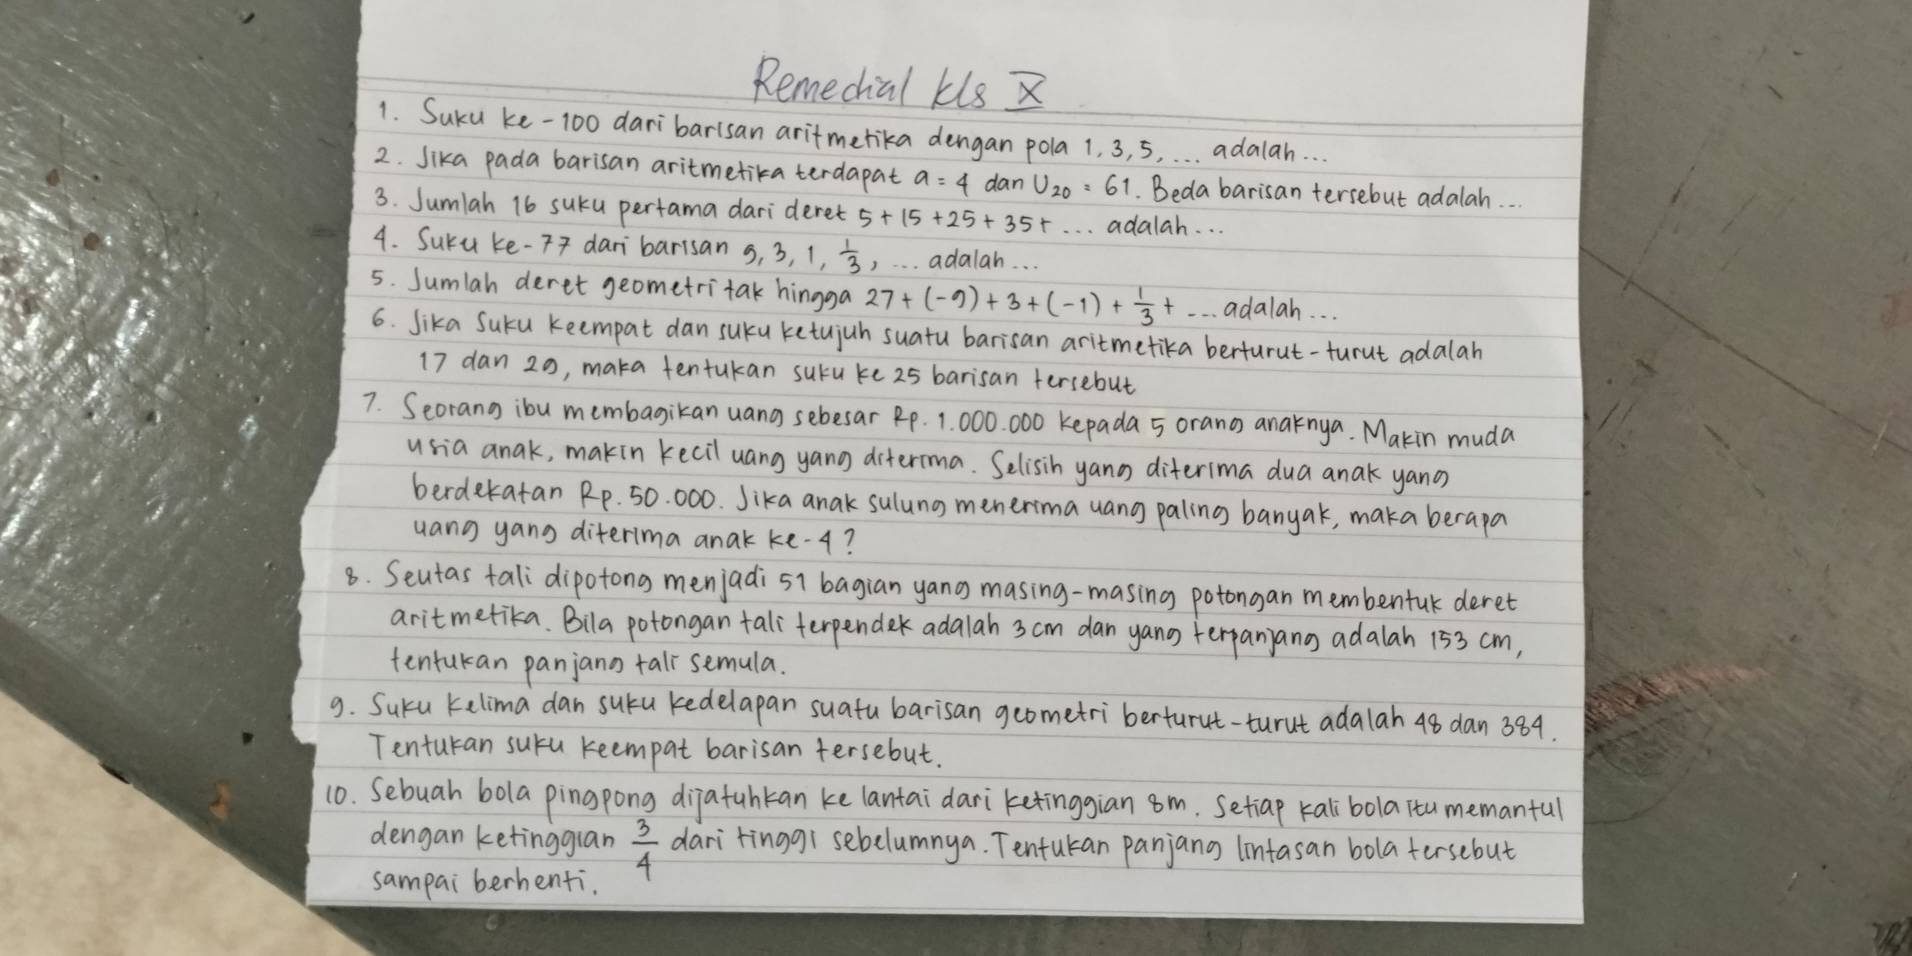 Remedial kls X
1. Suku ke-100 dari barisan aritmetika dengan pola 1, 3, 5, ... adalah...
2. Jika pada barisan aritmetika terdapat a = 4 dan U20 = 61. Beda barisan tersebut adalah...
3. Jumlah 16 suku pertama dari deret 5 + 15 + 25 + 35 + ... adalah...
4. Suku ke-77 dari barisan 9, 3, 1, 1/3, ... adalah...
5. Jumlah deret geometri tak hingga 27 + (-9) + 3 + (-1) + 1/3 + ... adalah...
6. Jika suku keempat dan suku ketujuh suatu barisan aritmetika berturut-turut adalah
17 dan 29, maka tentukan suku ke 25 barisan tersebut
7. Seorang ibu membagikan uang sebesar Rp. 1.000.000 kepada 5 orang anaknya. Makin muda
usia anak, makin kecil uang yang diterima. Selisih yang diterima dua anak yang
berdekatan Rp. 50.000. Jika anak sulung menerima uang paling banyak, maka berapa
uang yang diterima anak ke-4?
8. Seutas tali dipotong menjadi 51 bagian yang masing-masing potongan membentuk deret
aritmetika. Bila potongan tali terpendek adalah 3 cm dan yang terpanjang adalah 153 cm,
tentukan panjang tali semula.
9. Suku kelima dan suku kedelapan suatu barisan geometri berturut-turut adalah 48 dan 384.
Tentukan suku keempat barisan tersebut.
10. Sebuah bola pingpong dijatuhkan ke lantai dari ketinggian 8m. Setiap kali bola itu memantul
dengan ketinggian 3/4 dari tinggi sebelumnya. Tentukan panjang lintasan bola tersebut
sampai berhenti.